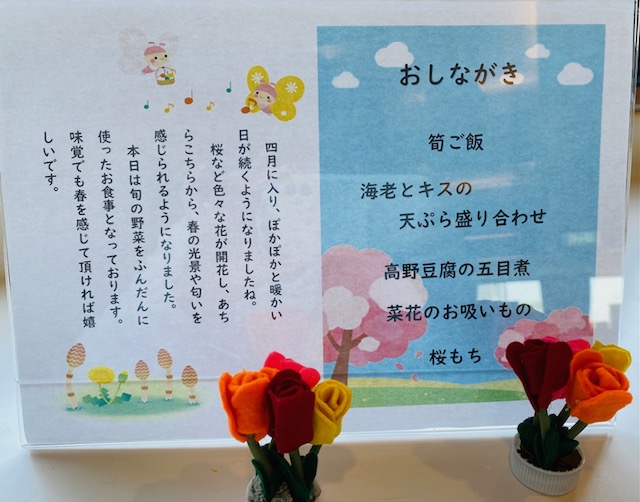 おしながき
筍ご飯
海老とキスの
天ぷら盛り合わせ
高野豆腐の五目煮
菜花のお吸いもの
桜もち
四月に入り、ぽかぽかと暖かい
日が続くようになりましたね。
桜など色々な花が開花し、あち
らこちらから、春の光景や匂いを
感じられるようになりました。
本日は旬の野菜をふんだんに
使ったお食事となっております。
味覚でも春を感じて頂ければ嬉
しいです。